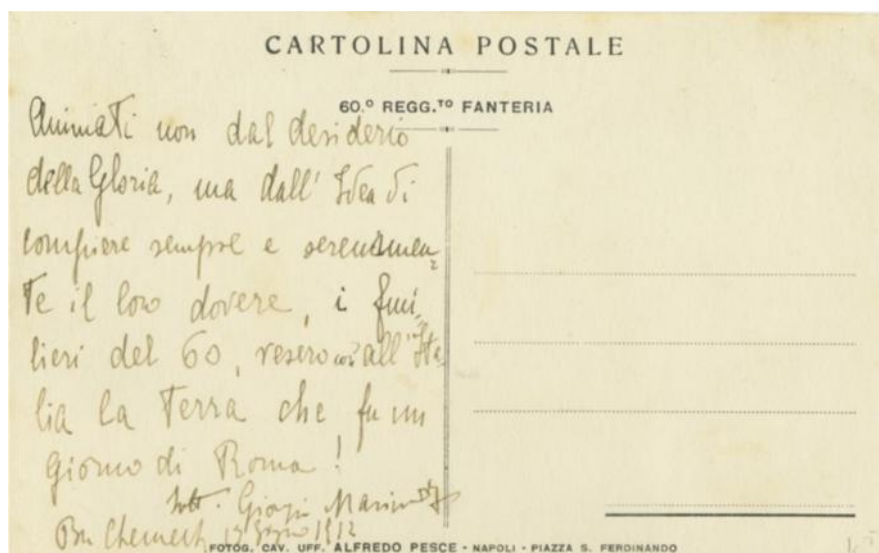 CARTOLINA POSTALE
60.º REGG.TO FANTERIA
Animati non dal desiderio
della Gloria, ma dall' Idea di
compiere sempre e serenamen
te il loro dovere, i fuci,
lieri del 60, resero così all' Ita
lia la Terra che fu un
giorno di Roma!
Sott. Giorgi
Bu Chemech, 1912
FOTOG. CAV. UFF. ALFREDO PESCE - NAPOLI - PIAZZA S. FERDINANDO